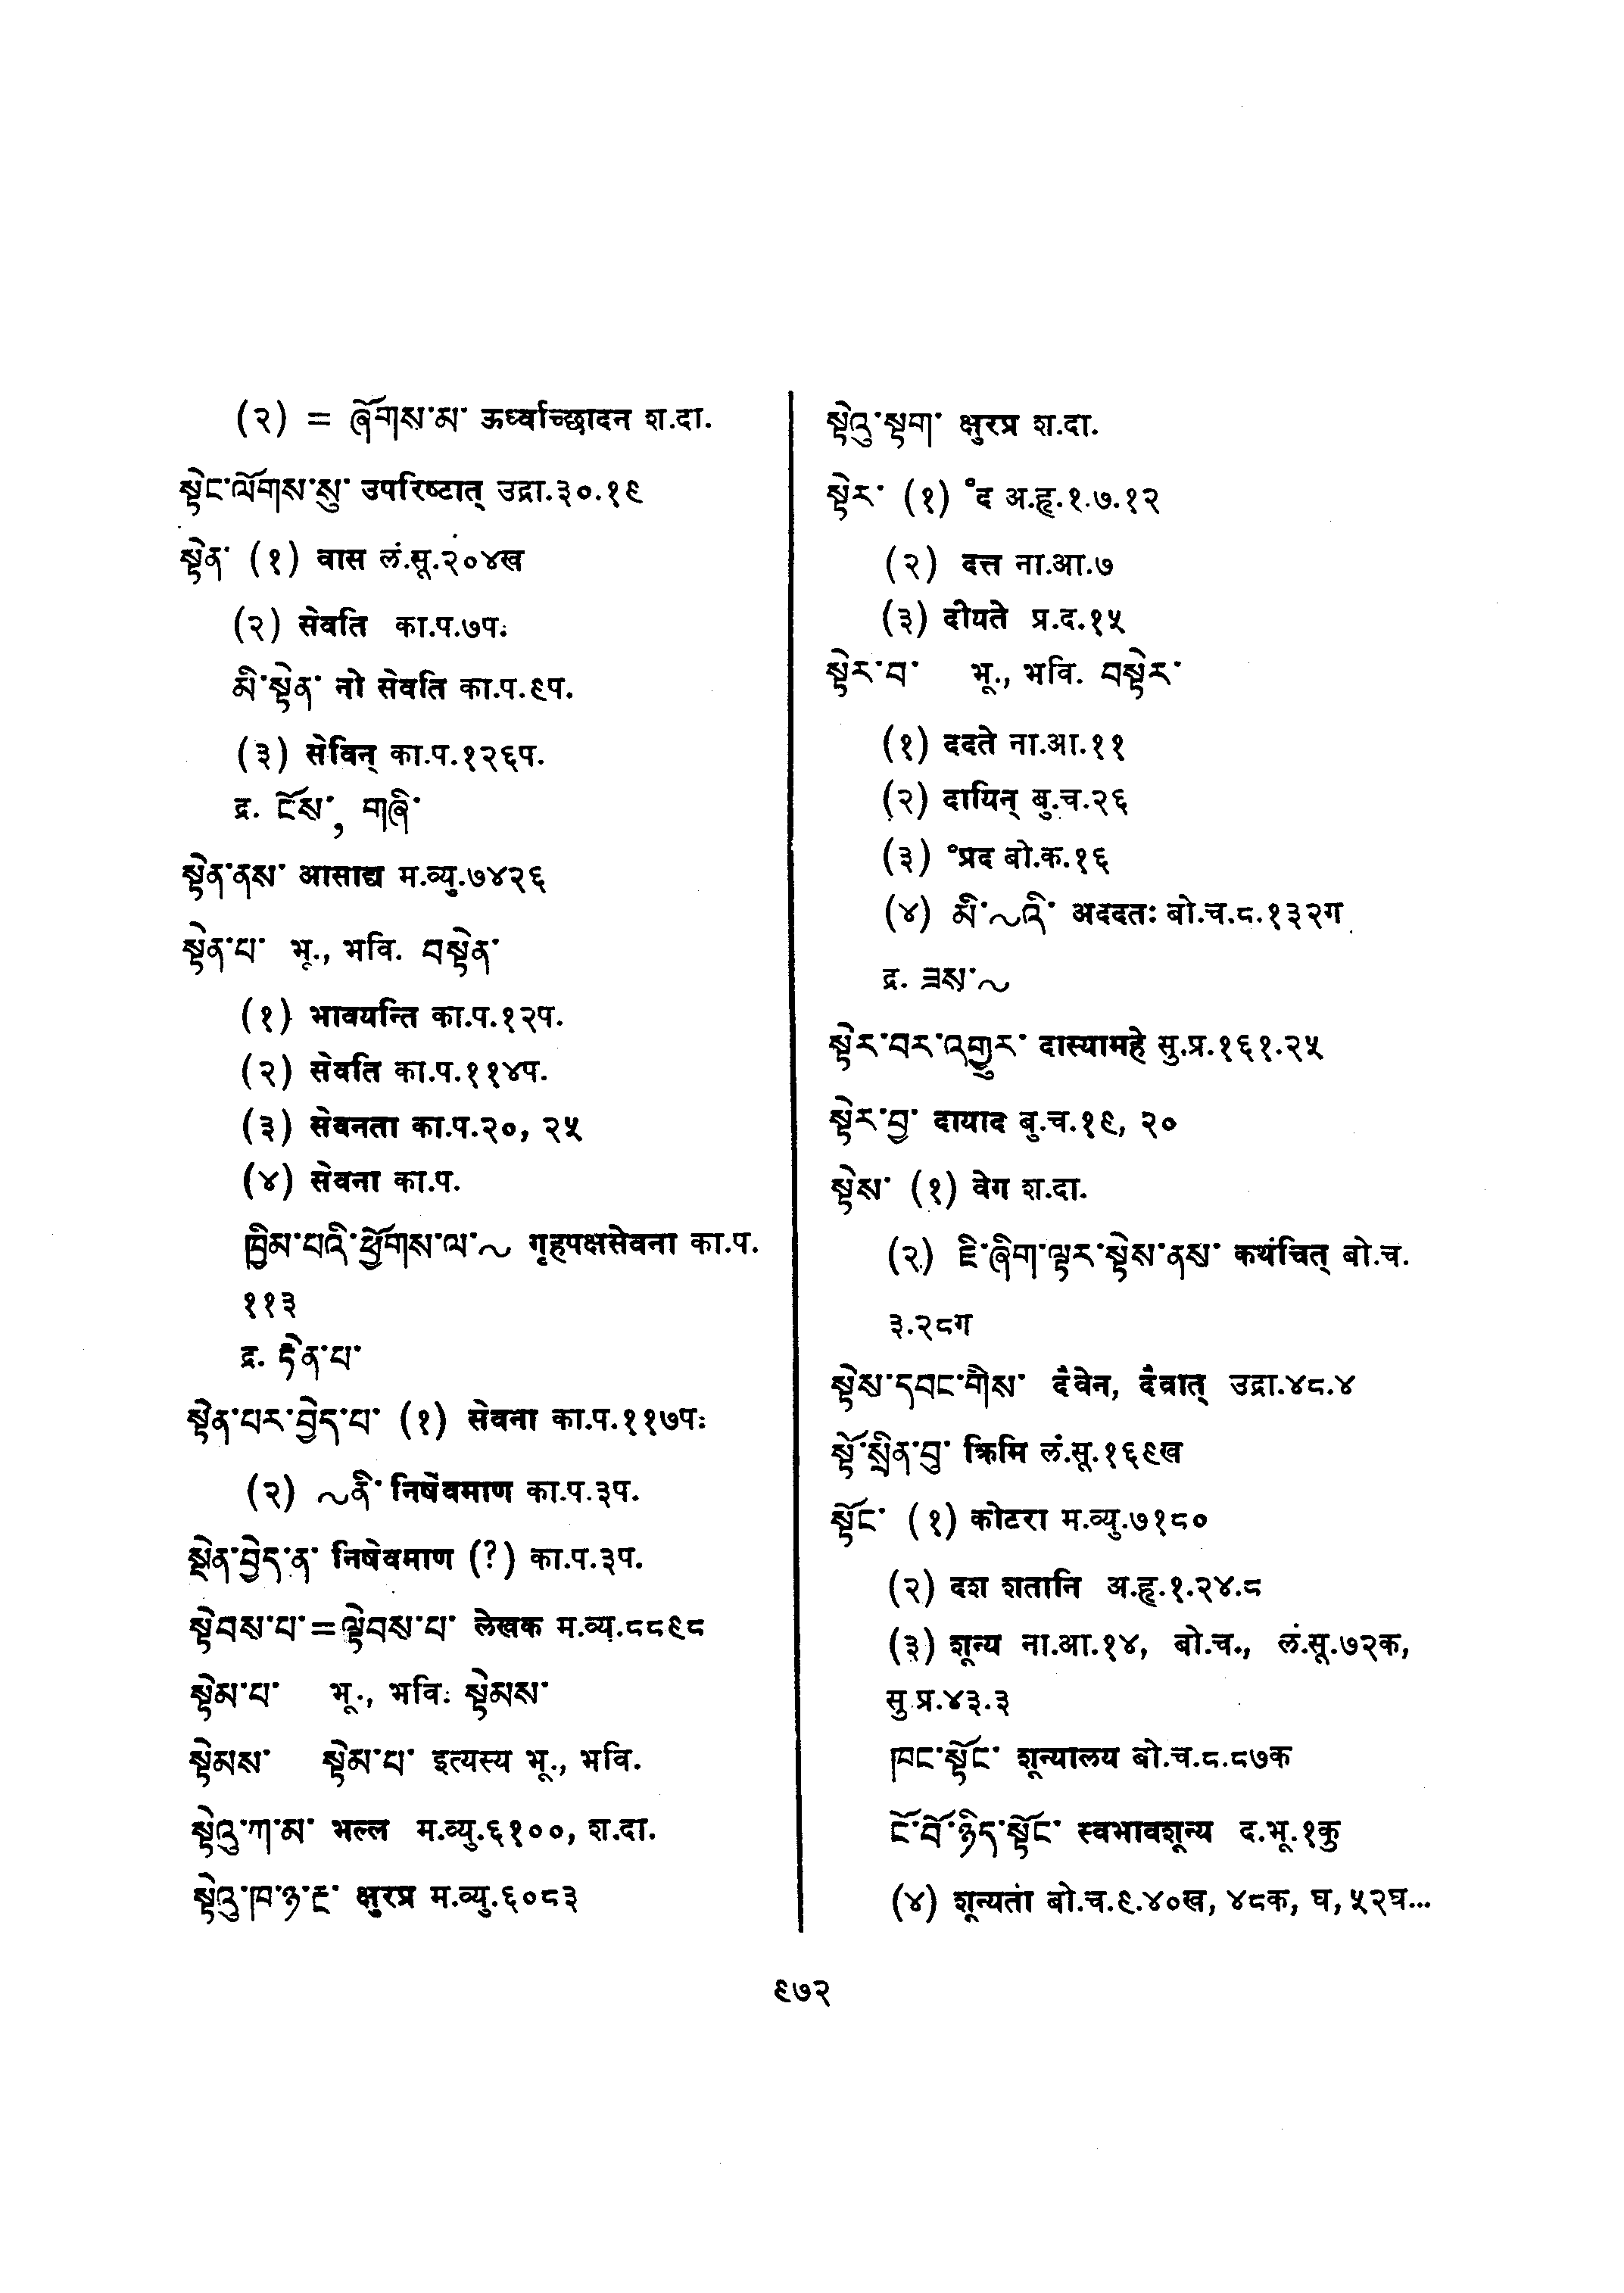 (२) = ཞོགས་མ་ ऊर्ध्वाच्छादन श.दा.
སྟེང་ལོགས་སུ་ उपरिष्टात् उद्रा.३०.१९
སྟེན་ (१) वास लं.सू.२०४ख
(२) सेवति का.प.७प.
མི་སྟེན་ नो सेवति का.प.९प.
(३) सेविन् का.प.१२६प.
द्र. ངོས་, གཞི་
སྟེན་ནས་ आसाद्य म.व्यु.७४२६
སྟེན་པ་ भू., भवि. བསྟེན་
(१) भावयन्ति का.प.१२प.
(२) सेवति का.प.११४प.
(३) सेवनता का.प.२०, २५
(४) सेवना का.प.
ཁྱིམ་པའི་ཕྱོགས་ལ་~ गृहपक्षसेवना का.प.
११३
द्र. རྟེན་པ་
སྟེན་པར་བྱེད་པ་ (१) सेवना का.प.११७प.
(२) ~ནི་ निषेवमाण का.प.३प.
སྟེན་བྱེད་ན་ निषेवमाण (?) का.प.३प.
སྟེབས་པ་=ལྟེབས་པ་ लेखक म.व्य.८८९८
སྟེམ་པ་ भू., भवि. སྟེམས་
སྟེམས་ སྟེམ་པ་ इत्यस्य भू., भवि.
སྟེའུ་ཀ་མ་ भल्ल म.व्यु.६१००, श.दा.
སྟེའུ་ཁ་ཉ་ང་ क्षुरप्र म.व्यु.६०८३
སྟེའུ་སྟག་ क्षुरप्र श.दा.
སྟེར་ (१) ॰द अ.हृ.१.७.१२
(२) दत्त ना.आ.७
(३) दीयते प्र.द.१५
སྟེར་བ་ भू., भवि. བསྟེར་
(१) ददते ना.आ.११
(२) दायिन् बु.च.२६
(३) ॰प्रद बो.क.१६
(४) མི་~འི་ अददतः बो.च.८.१३२ग
द्र. ཟས་~
སྟེར་བར་འགྱུར་ दास्यामहे सु.प्र.१६१.२५
སྟེར་བྱ་ दायाद बु.च.१९, २०
སྟེས་ (१) वेग श.दा.
(२) ཇི་ཞིག་ལྟར་སྟེས་ནས་ कथंचित् बो.च.
३.२८ग
སྟེས་དབང་གིས་ दैवेन, दैवात् उद्रा.४८.४
སྟོ་སྲིན་བུ་ क्रिमि लं.सू.१६९ख
སྟོང་ (१) कोटरा म.व्यु.७१८०
(२) दश शतानि अ.हृ.१.२४.८
(३) शून्य ना.आ.१४, बो.च., लं.सू.७२क,
सु.प्र.४३.३
ཁང་སྟོང་ शून्यालय बो.च.८.८७क
ངོ་བོ་ཉིད་སྟོང་ स्वभावशून्य द.भू.१कु
(४) शून्यता बो.च.९.४०ख, ४८क, घ, ५२घ...
९७२